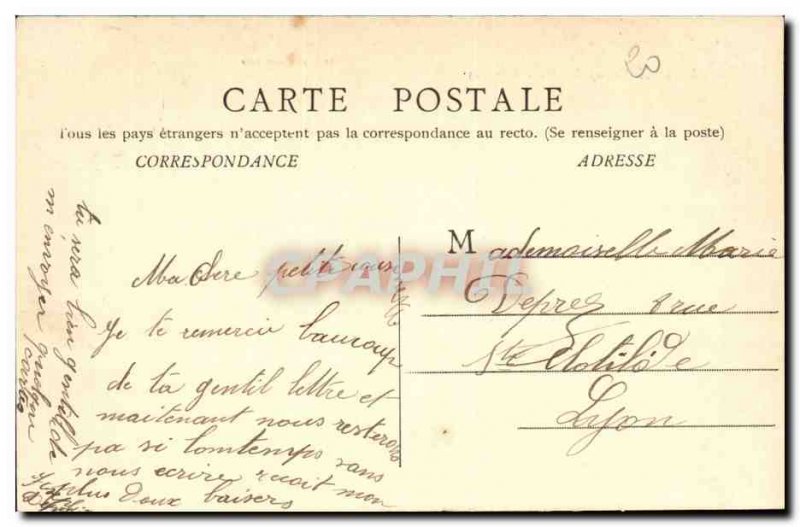 20
CARTE POSTALE
Tous les pays étrangers n'acceptent pas la correspondance au recto. (Se renseigner à la poste)
CORRESPONDANCE
ADRESSE
Ma chere petite cousine
Je te remercie baucoup
de ta gentil lettre et
maitenant nous resterons
pa si lomtemps sans
nous ecrire recoit mon
plus doux baisers
tu sera bien gentille de
m envoyer quelque
cartes
Mademoiselle Marie
Deprez 8 rue
Ste Clotilde
Lyon
CPAPHIL